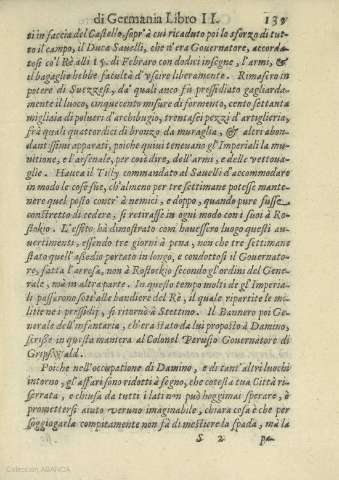 di Germania Libro II. 139
ti in faccia del Castello, sopr'à cui ricaduto poi lo sforzo di tut-
to il campo, il Duca Savelli, che n'era Governatore, accorda-
tosi co'l Rè alli 15. di Febraro con dodici insegne, l'armi, &
il bagaglio hebbe facultà d'uscire liberamente. Rimasero in
potere di Suezzesi, da' quali anco fù pressidiato gagliarda-
mente il luoco, cinquecento misure di formento, cento settanta
migliaia di polueri d'archibugio, trentasei pezzi d'artiglieria,
frà quali quattordici di bronzo da muraglia, & altri abon-
dantissimi apparati, poiche quiui teneuano gl'Imperiali la mu-
nitione, e l'arsenale, per così dire, dell'armi, e delle vettoua-
glie. Haueua il Tilly commandato al Sauelli d'accommodare
in modo le cose sue, ch'almeno per tre settimane potesse mante-
nere quel posto contr'à nemici, e doppo, quando pure fusse
constretto di cedere, si retirasse in ogni modo con i suoi à Ro-
stokio. L'effetto hà dimostrato com'hauessero luogo questi au-
uertimenti, essendo tre giorni à pena, non che tre settimane
stato quell'assedio portato in longo, e condottosi il Gouernato-
re, fatta l'aresa, non à Rostockio secondo gl'ordini del Gene-
rale, mà in altra parte. In questo tempo molti de gl'Imperia-
li passarono sott'alle bandiere del Rè, il quale ripartite le mi-
litie ne i pressidij, si ritornò à Stettino. Il Banner poi Ge-
nerale dell'infantaria, ch'era stato da lui proposto à Damino,
scrisse in questa maniera al Colonel Perusio Gouernatore di
Gripswald.
Poiche nell'occupatione di Damino, e di tant'altri luochi
intorno, gl'affari sono ridotti à segno, che cotesta tua Città ri-
serrata, e chiusa da tutti i lati non può hoggimai sperare, è
promettersi aiuto veruno imaginabile, chiara cosa è che per
soggiogarla compitamente non fà di mestiere la spada, mà la
S 2 pa-
Colección ABANCA